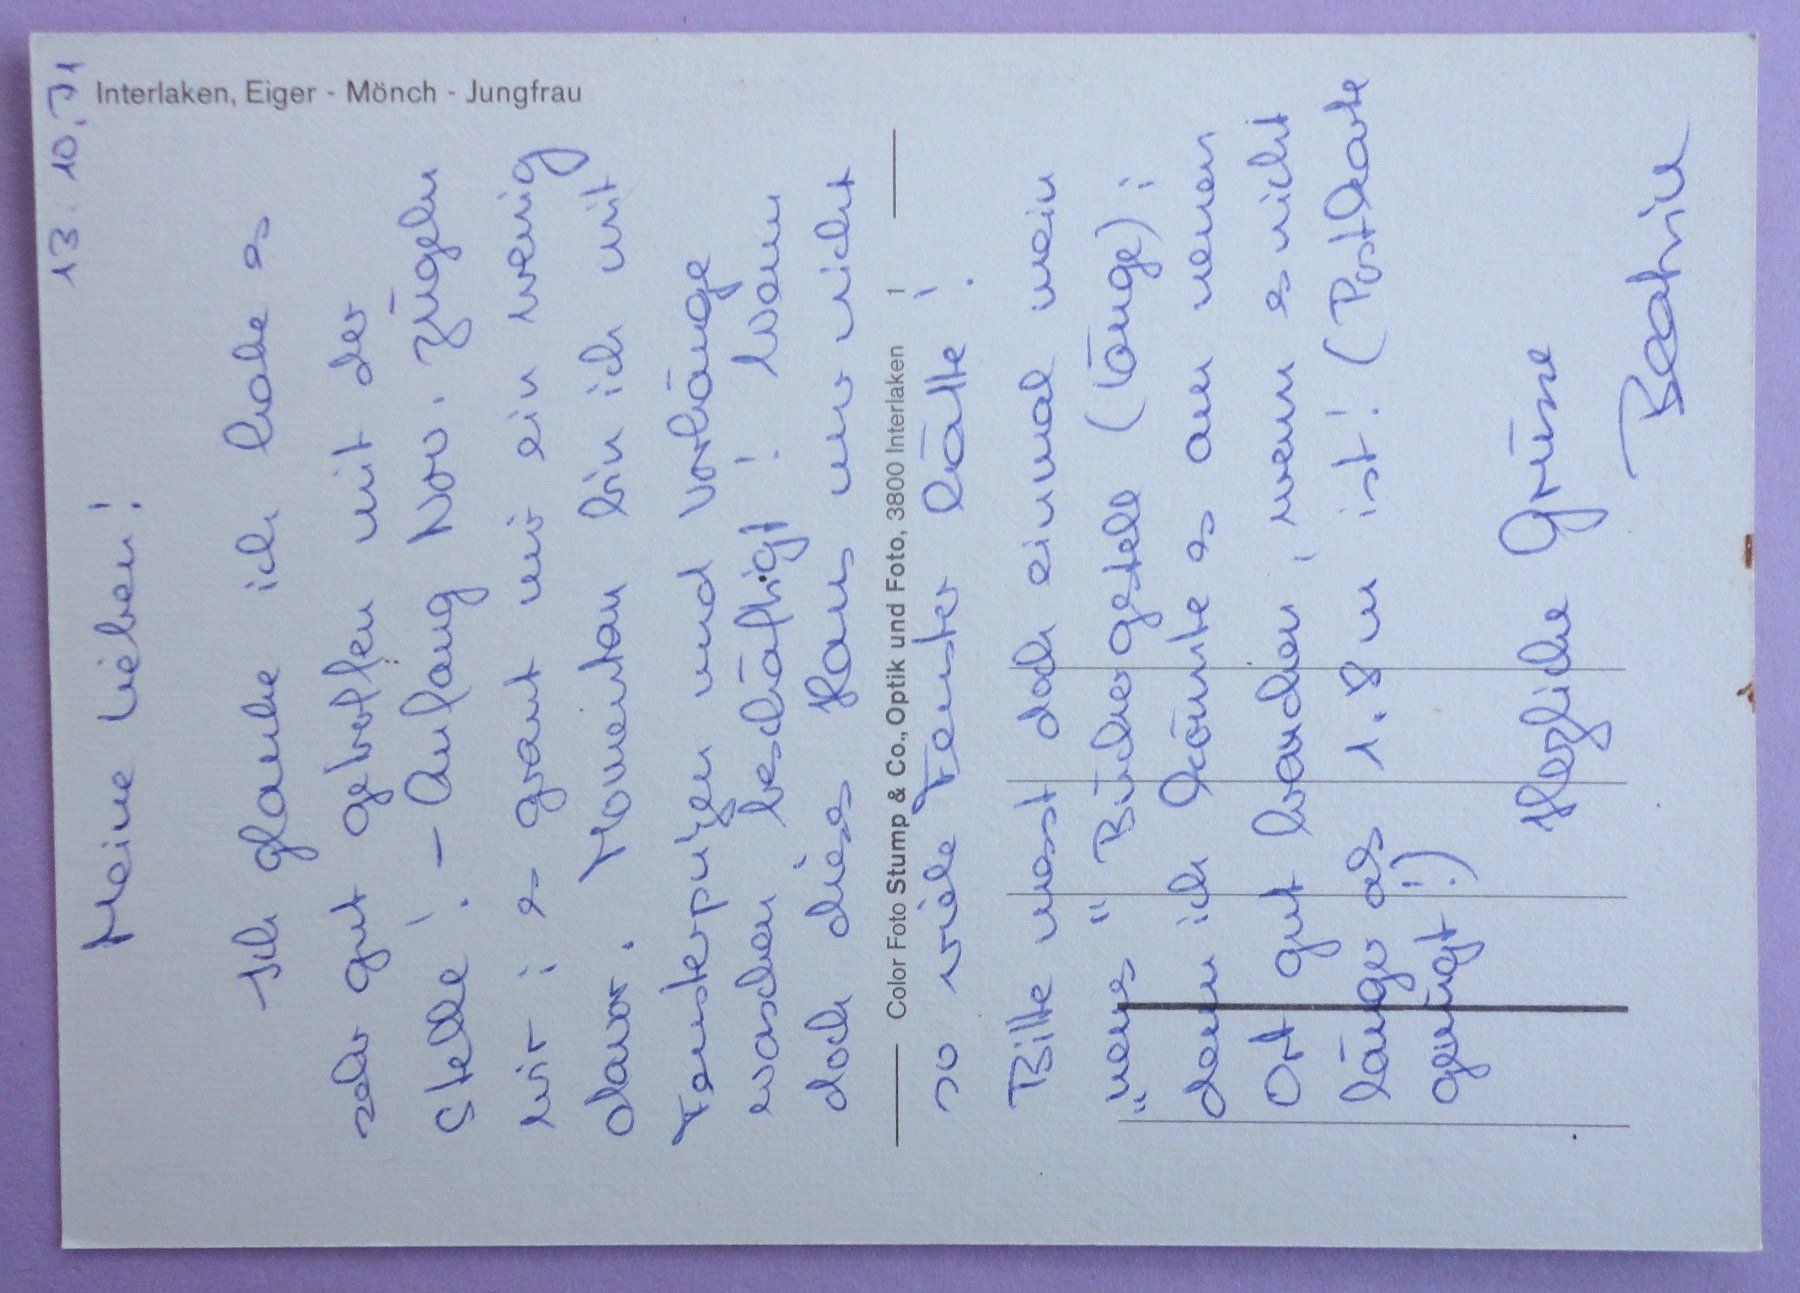 Interlaken, Eiger - Mönch - Jungfrau
13. 10. 71
Meine Lieben!
Ich glaube ich habe es
sehr gut getroffen mit der
Stelle! - Anfang Nov. zügeln
wir; es graut mir ein wenig
davor. Momentan bin ich mit
Fensterputzen und Vorhänge
waschen beschäftigt! Wenn
doch dieses Haus nur nicht
so viele Fenster hätte!
Bitte messt doch einmal mein
"neues" Büchergestell (Länge);
denn ich könnte es am neuen
Ort gut brauchen, wenn es nicht
länger als 1.8 m ist! (Postkarte
genügt!)
Herzliche Grüsse
Beatrice
Color Foto Stump & Co., Optik und Foto, 3800 Interlaken 1